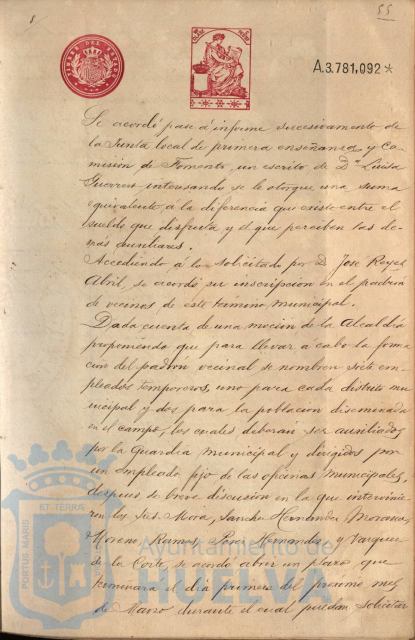 55
A.3.781,092*
Se acordó pase á informe sucesivamente de
la Junta local de primera enseñanza y Co-
misión de Fomento, un escrito de Dª Luisa
Guerrero interesando se le otorgue una suma
equivalente á la diferencia que existe entre el
sueldo que disfruta y el que perciben las de-
más auxiliares.
Accediendo á lo solicitado por D. José Reyes
Abril, se acordó su inscripción en el padrón
de vecinos de este término municipal.
Dada cuenta de una moción de la Alcaldía
proponiendo que para llevar á cabo la forma
ción del padrón vecinal se nombren siete em-
pleados temporeros, uno para cada distrito mu
nicipal y dos para la población diseminada
en el campo, los cuales deberán ser auxiliados
por la Guardia municipal y dirigidos por
un empleado fijo de las oficinas municipales,
despues de breve discusión en la que intervinie-
ron los Sres. Mora, Sanchez Hernandez,
Moreno, Ramos, Perez Hernandez y Vazquez
de la Corte, se acordó abrir un plazo que
terminará el día primero del próximo mes
de Marzo durante el cual puedan solicitar
PORTUS MARIS
ET TERRAE
Ayuntamiento de
HUELVA